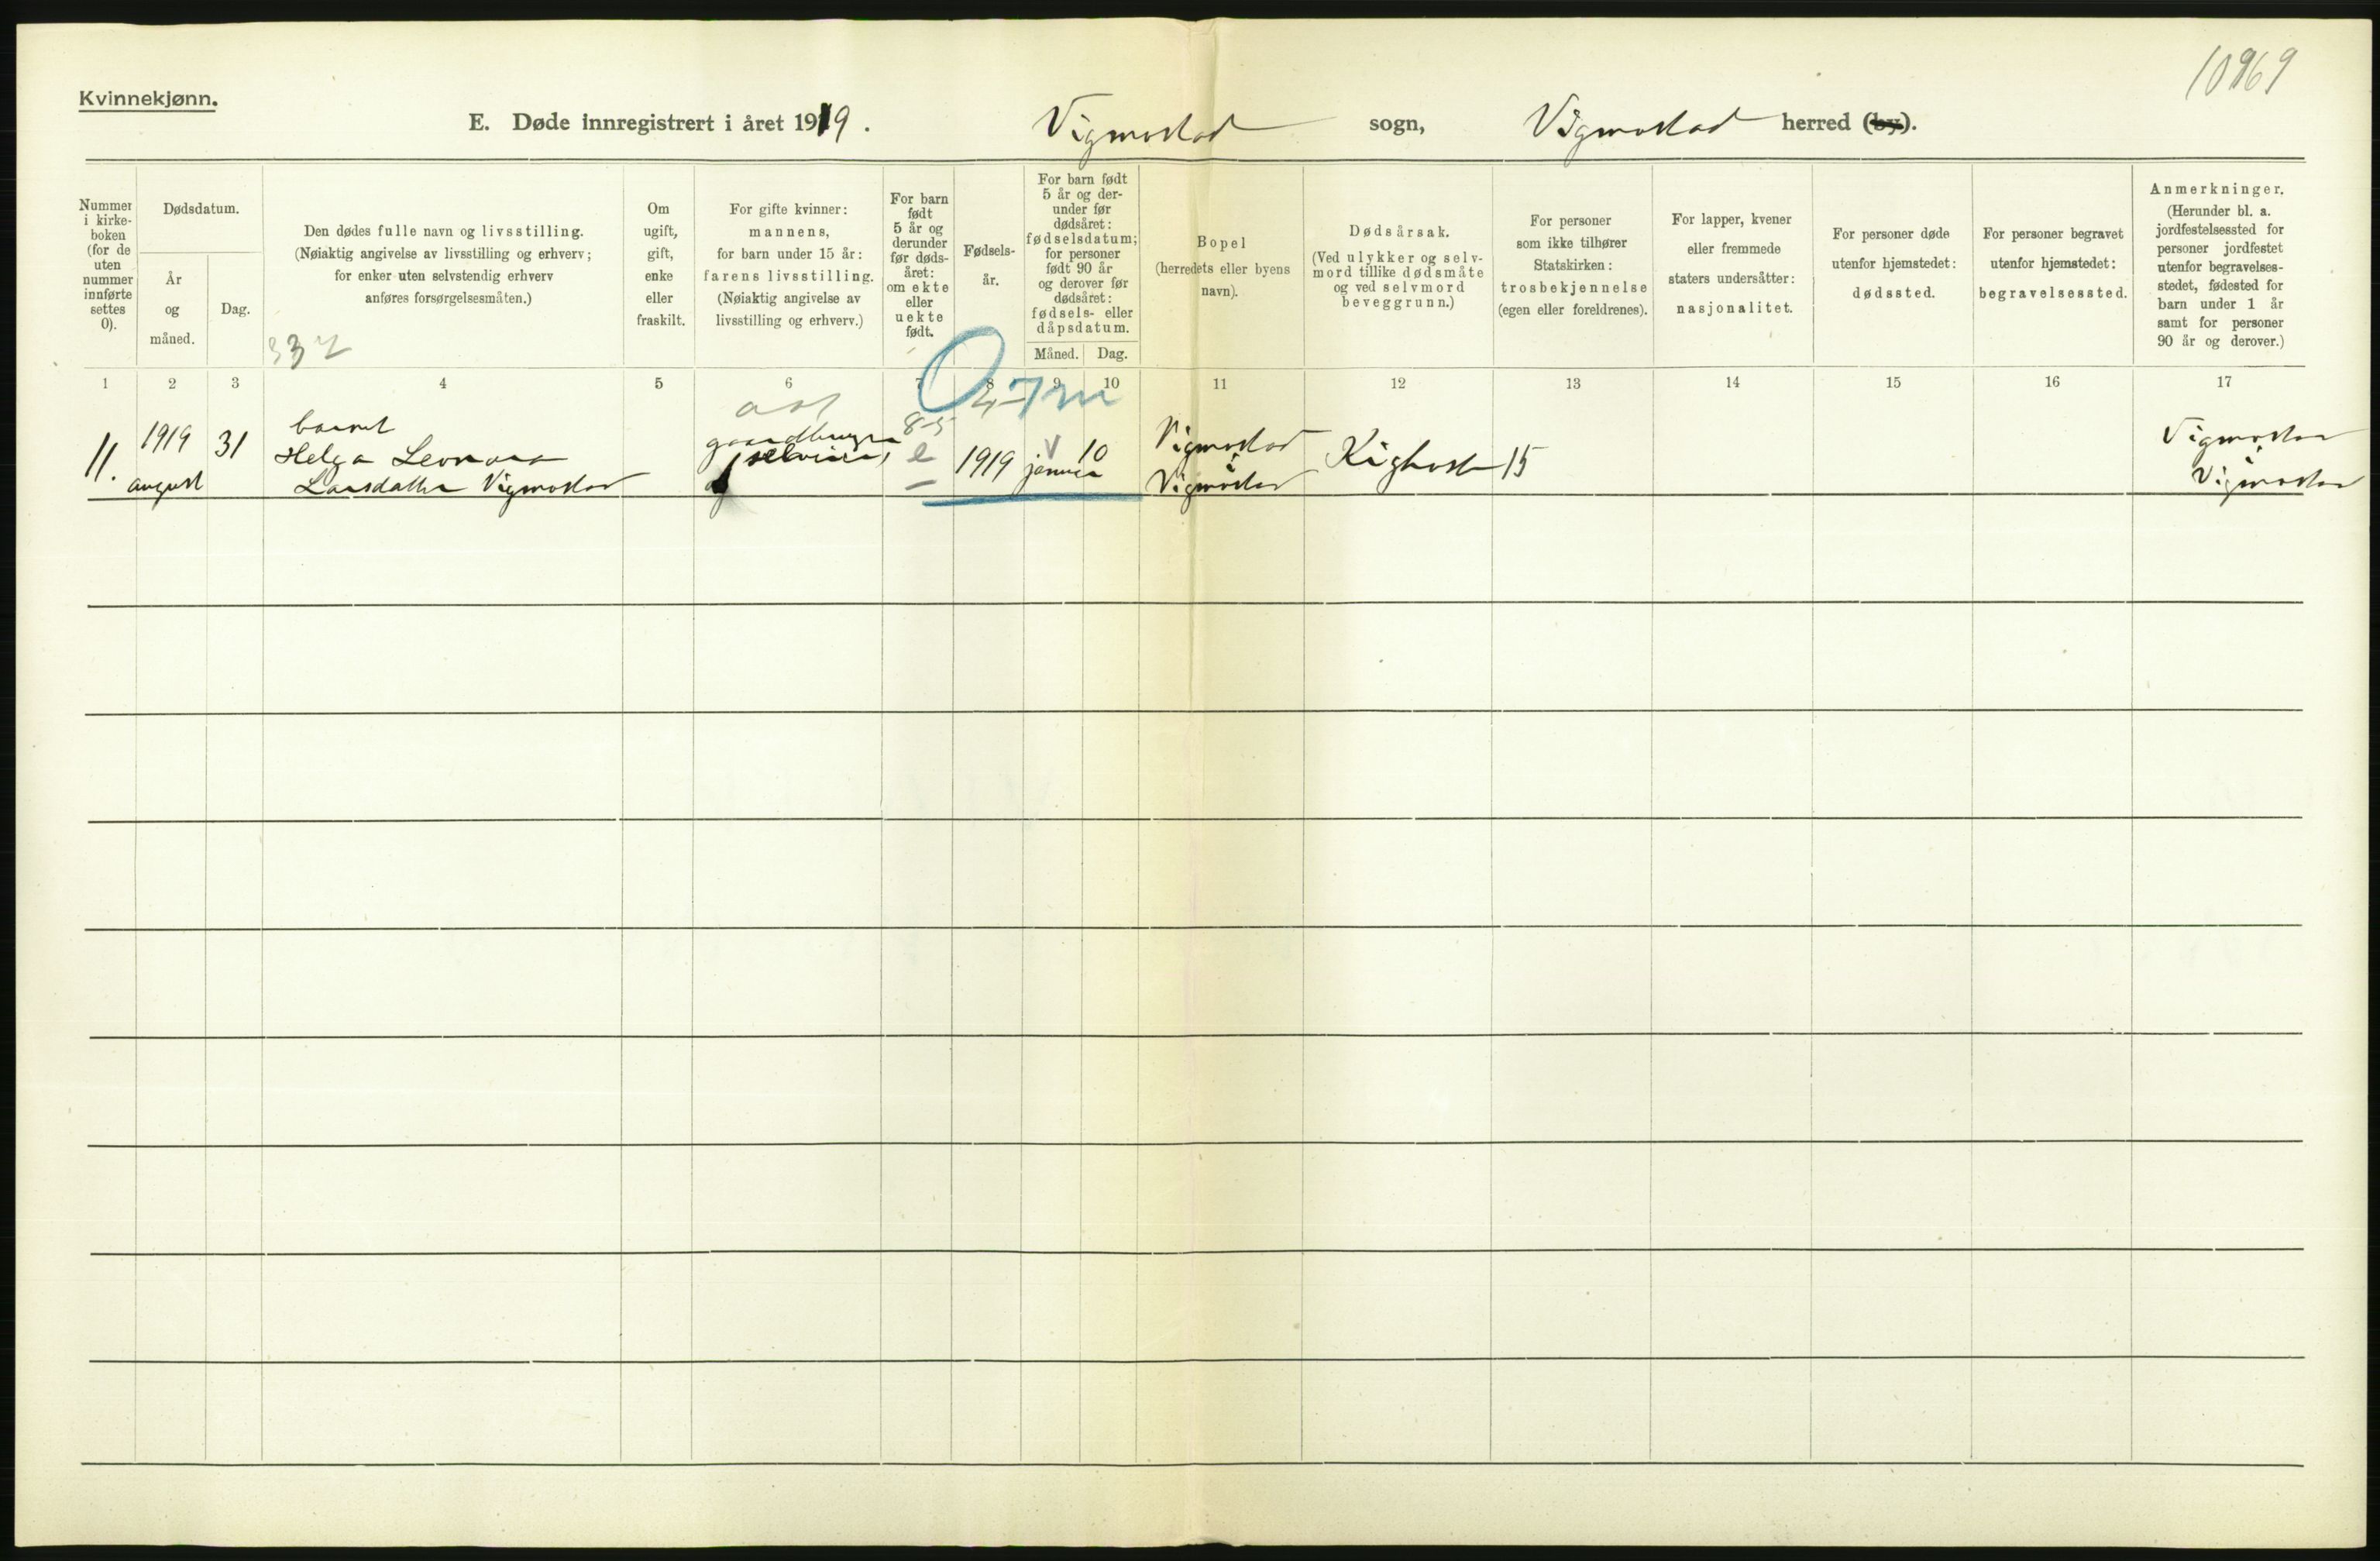 10969
Kvinnekjønn.
E. Døde innregistrert i året 1919. Vigmostad sogn, Vigmostad herred (by).
Nummer
i kirke-
boken
(for de
uten
nummer
innførte
settes
0).
Dødsdatum.
År
og
måned.
Dag.
Den dødes fulle navn og livsstilling.
(Nøiaktig angivelse av livsstilling og erhverv;
for enker uten selvstendig erhverv
anføres forsørgelsesmåten.)
Om
ugift,
gift,
enke
eller
fraskilt.
For gifte kvinner:
mannens,
for barn under 15 år:
farens livsstilling.
(Nøiaktig angivelse av
livsstilling og erhverv.)
For barn
født
5 år og
derunder
før døds-
året:
om ekte
eller
uekte
født.
Fødsels-
år.
For barn født
5 år og der-
under før
dødsåret:
fødselsdatum;
for personer
født 90 år
og derover før
dødsåret:
fødsels- eller
dåpsdatum.
Måned. Dag.
Bopel
(herredets eller byens
navn).
Dødsårsak.
(Ved ulykker og selv-
mord tillike dødsmåte
og ved selvmord
beveggrunn.)
For personer
som ikke tilhører
Statskirken:
trosbekjennelse
(egen eller foreldrenes).
For lapper, kvener
eller fremmede
staters undersåtter:
nasjonalitet.
For personer døde
utenfor hjemstedet:
dødssted.
For personer begravet
utenfor hjemstedet:
begravelsessted.
Anmerkninger.
(Herunder bl. a.
jordfestelsessted for
personer jordfestet
utenfor begravelses-
stedet, fødested for
barn under 1 år
samt for personer
90 år og derover.)
337
1 2 3 4 5 6 7 8 9 10 11 12 13 14 15 16 17
0 4-7 m
85
11.
1919
august
31
barnet
Helga Leonora
Larsdatter Vigmostad
gaardbruger
selveier
e
1919
januar
10
Vigmostad
Vigmostad
Kighoste 15
Vigmostad
Vigmostad